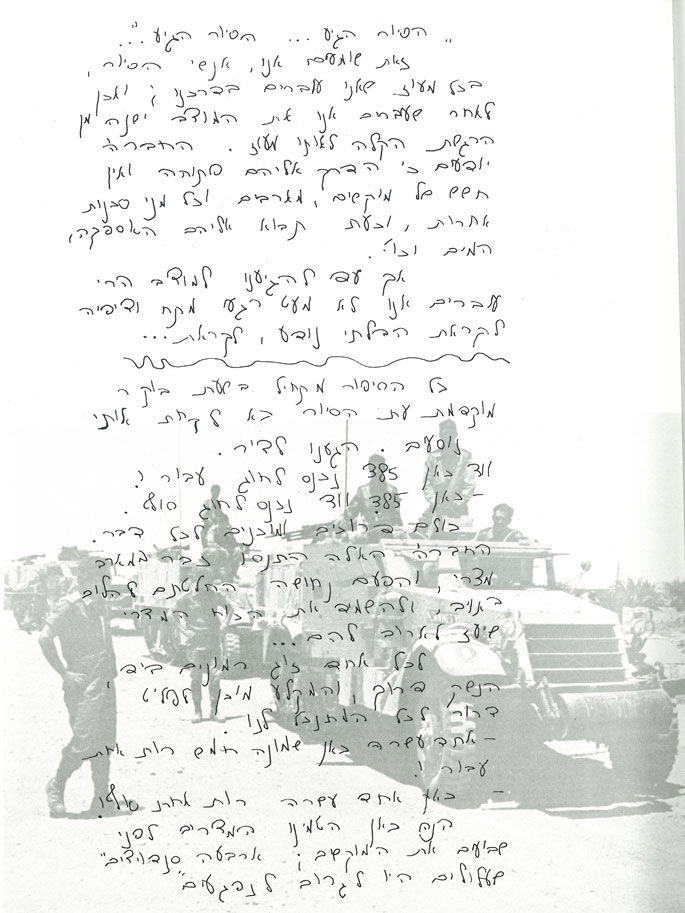 "הסיור הגיע... הסיור הגיע"...
זאת שומעים אנו, אנשי הסיור,
בכל מעוז שאנו עוברים בדרכנו; ואכן
לאחר שעוברים אנו את המוצב ישנה מן
הרגשת הקלה לאותו מעוז. החברה
יודעים כי הדרך אליהם פתוחה ואין
חשש של מוקשים, מארבים וכל מני סכנות
אחרות, וכעת תבוא אליהם האספקה,
המים וכו'.
אך עם להגיענו למוצב הרי
עוברים אנו לא מעט רגעי מתח וציפיה
לקראת הבלתי נודע, לקראת...
כל הסיפור מתחיל בשעת בוקר
מוקדמת עת הסיור בא לקחת אותי
נוסעים. הגענו לציר.
כאן 385 נכנס לחוג עבור!
- כאן 385 נכנס לחוג סוף.
כולם דרוכים ומוכנים לכל דבר.
החברה האלה התנסו כבר במארב
מצרי, והפעם נחושה החלטתם להלום
באויב, ולהשמיד את הכוח המצרי
שיעז לארוב להם...
לכל אחד זוג רמונים ביד,
הנשק דרוך, והמקלע מוכן לפליט
צרור לכל המתנכל לנו.
- אחד עשרה כאן שמונה חמש רות אחת
עבור!
- כאן אחד עשרה רות אחת סוף!
הנה כאן הטמינו המצרים לפני
שבועים את המוקשים; ארבעה סנדויצים"
שעלולים היו לגרום לנפגעים"